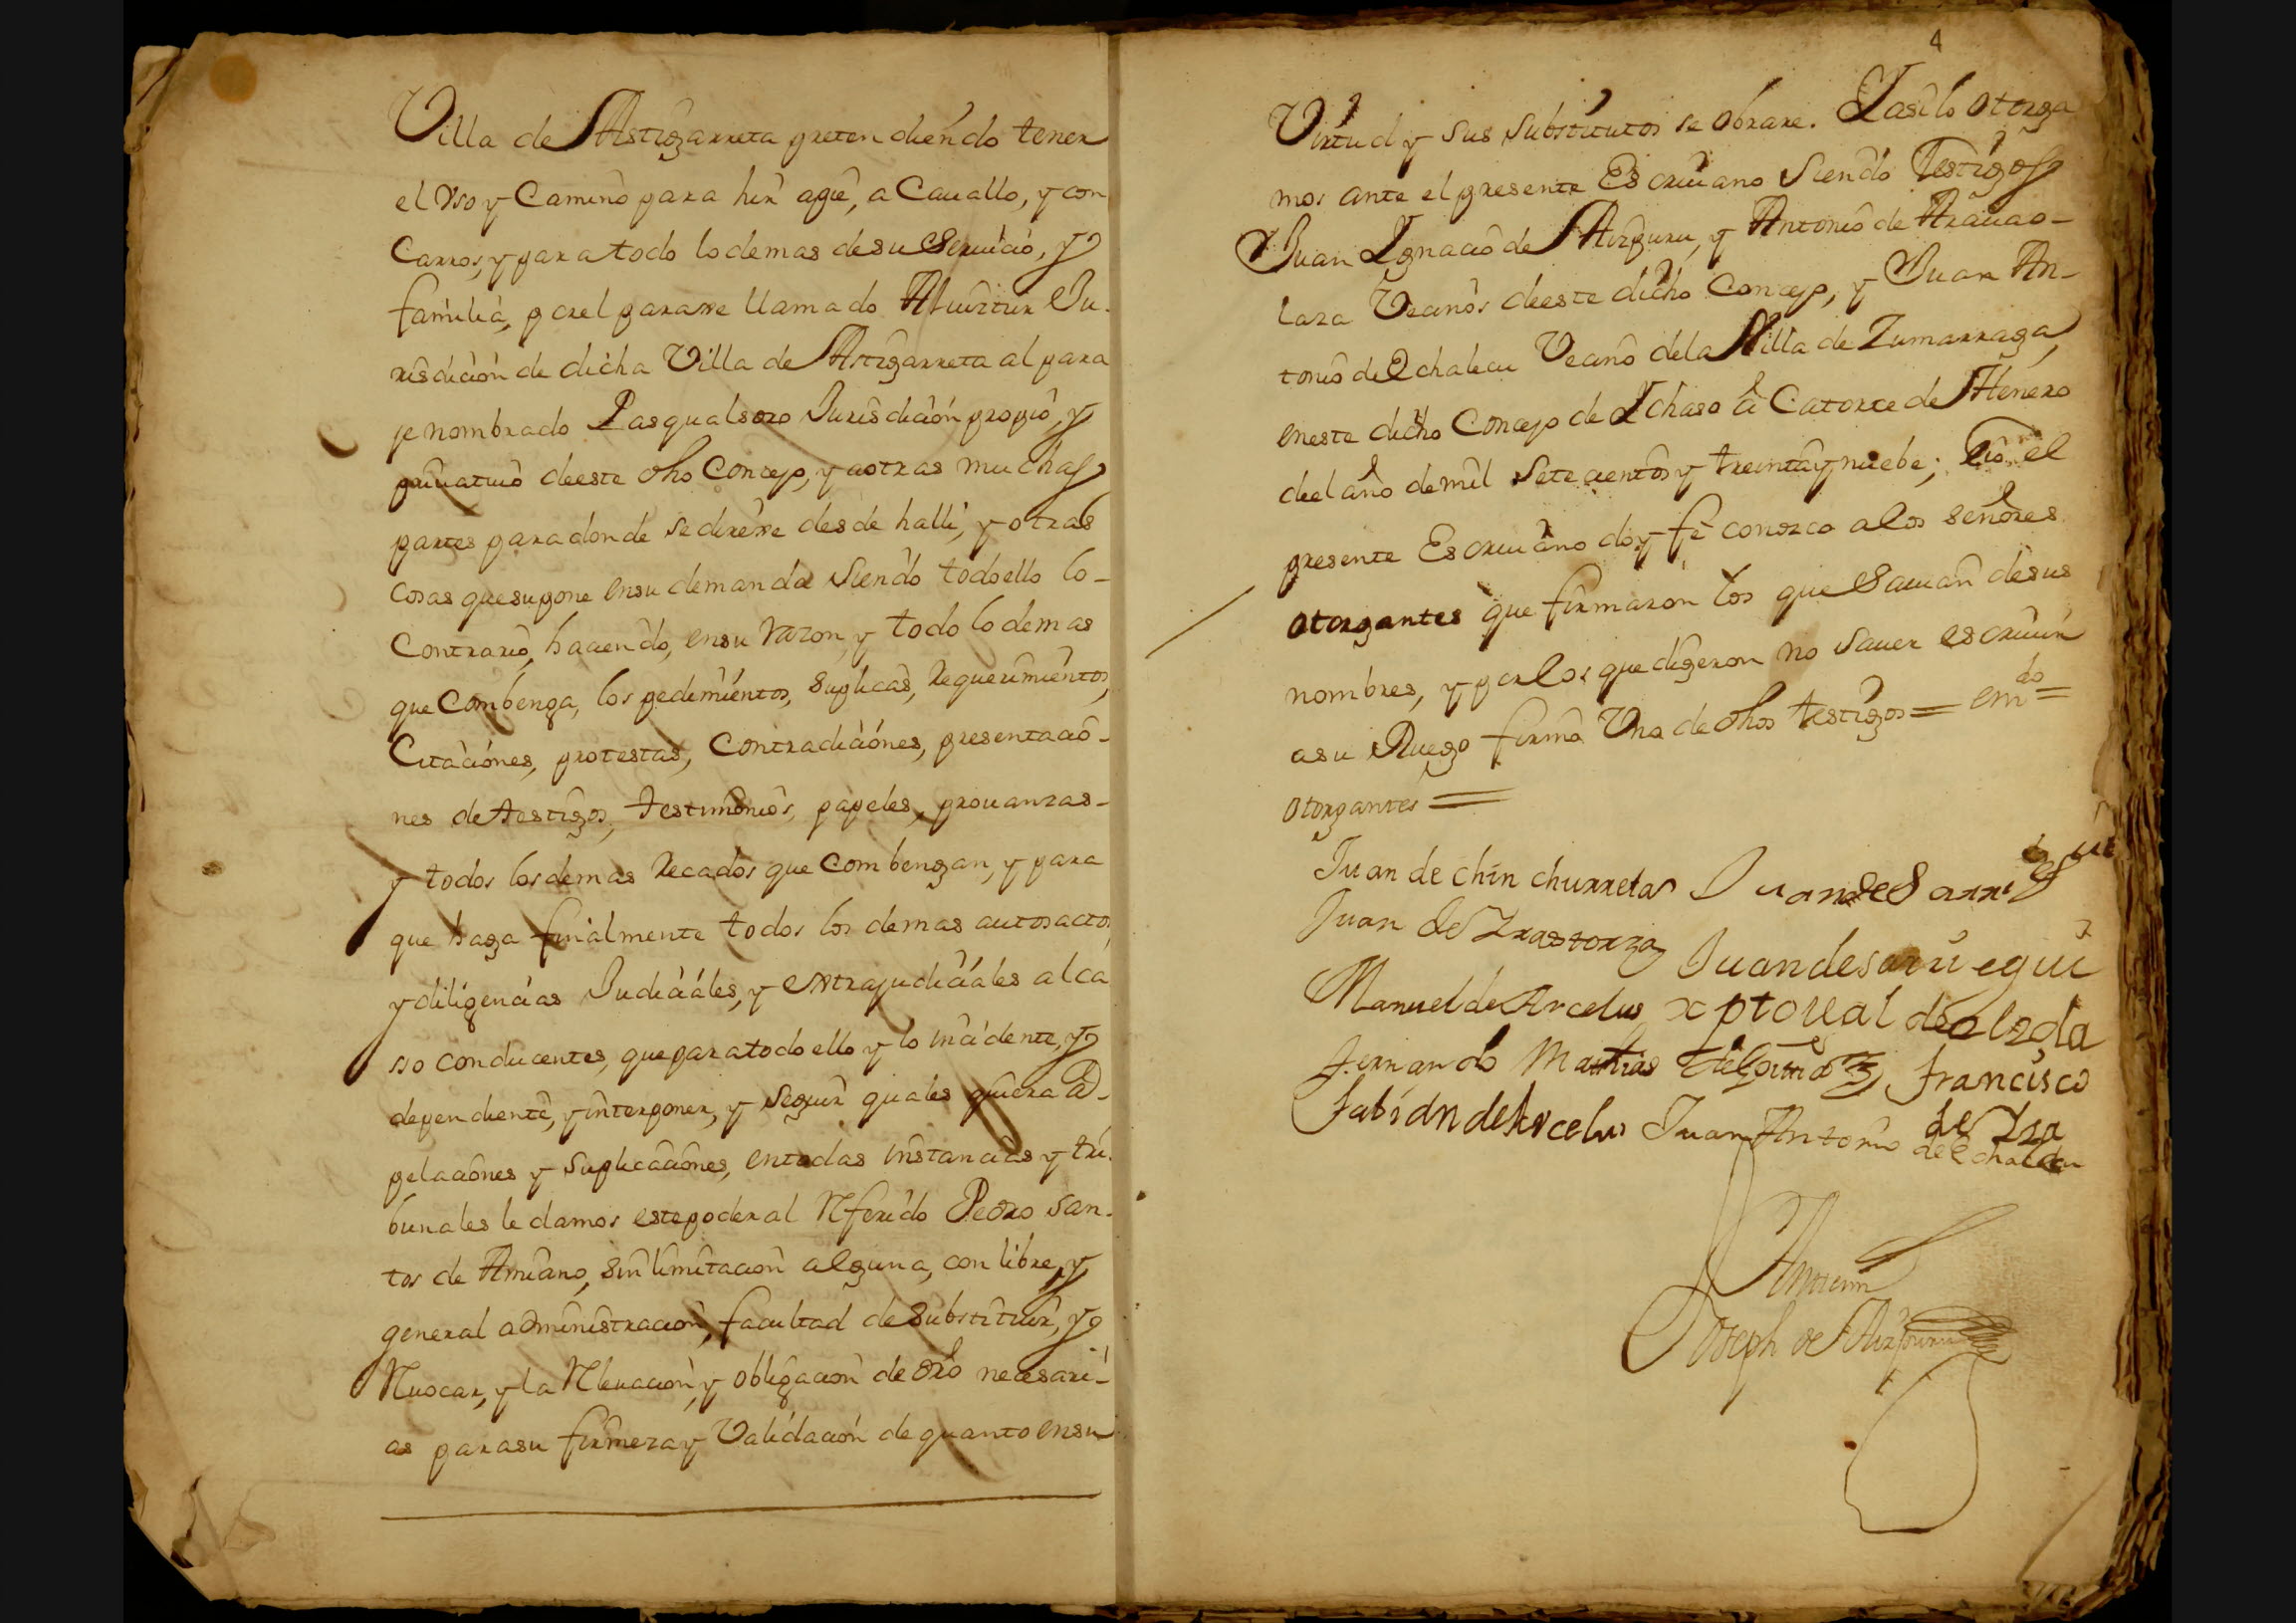 Villa de Astigarreta pretendiendo tener
el vso y Camino para hir apie, a Cauallo, y con
Carros, y para todo lo demas de su Seruicio, y
familia, por el paraxe llamado Ju-
risdicion de dicha Villa de Astigarreta al para
je nombrado Pasqualsoro Jurisdicion propio, y
priuatiuo deeste dho Concejo, y aotras muchas
partes para donde se dirixe desde halli, y otras
cosas que supone ensu demanda siendo todo ello lo
Contrario, haciendo, ensu razon, y todo lo demas
que Combenga, los pedimientos, suplicas, Requerimientos,
Citaciones, protestas, Contradiciones, presentacio-
nes de testigos, testimonios, papeles, prouanzas-
y todos los demas Recados que Combengan, y para
que haga finalmente todos los demas autos actos,
y diligencias Judiciales, y extrajudiciales al ca
so conducentes, que para todo ello y lo incidente, y
dependiente, y interponer, y seguir quales quiera A-
pelaciones y suplicaciones, entodas instancias y tri-
bunales le damos este poder al Referido Pedro San-
tos de Amiano, sin limitacion alguna, con libre, y
general administracion, facultad de substituir, y
Reuocar, y la Releuacion, y obligacion de dro necesari-
as para su firmeza y Validacion de quanto ensu
4
Virtud y sus substitutos se obrare. Y asi lo otorga
mos ante el presente Escriuano siendo Testigos
Juan Ignacio de Aizpuru, y Antonio de Arauao-
laza Vecinos deeste dicho Concejo, y Juan An-
tonio de Echalecu Vecino dela Villa de Zumarraga,
eneste dicho Concejo de Ychaso â Catorce de Henero
deel año de mil setecientos y treinta y nuebe; E io el
presente Escriuano doy fe conozco a los señores
otorgantes que firmaron los que sauian de sus
nombres, y por los que digeron no sauer escriuir
asu Ruego firmô Vno de dhos testigos = em^do =
otorgantes =
Juan de chinchurreta Juan de Sarri
Juan de Yrastorza Juan de saru egui
Manuel de Arcelus xptoual de olzda
Fernando Mathias francisco
fabian de Arcelus Juan Antonio de Yza
de Echalecu
Antemi
Joseph de Aizpuru